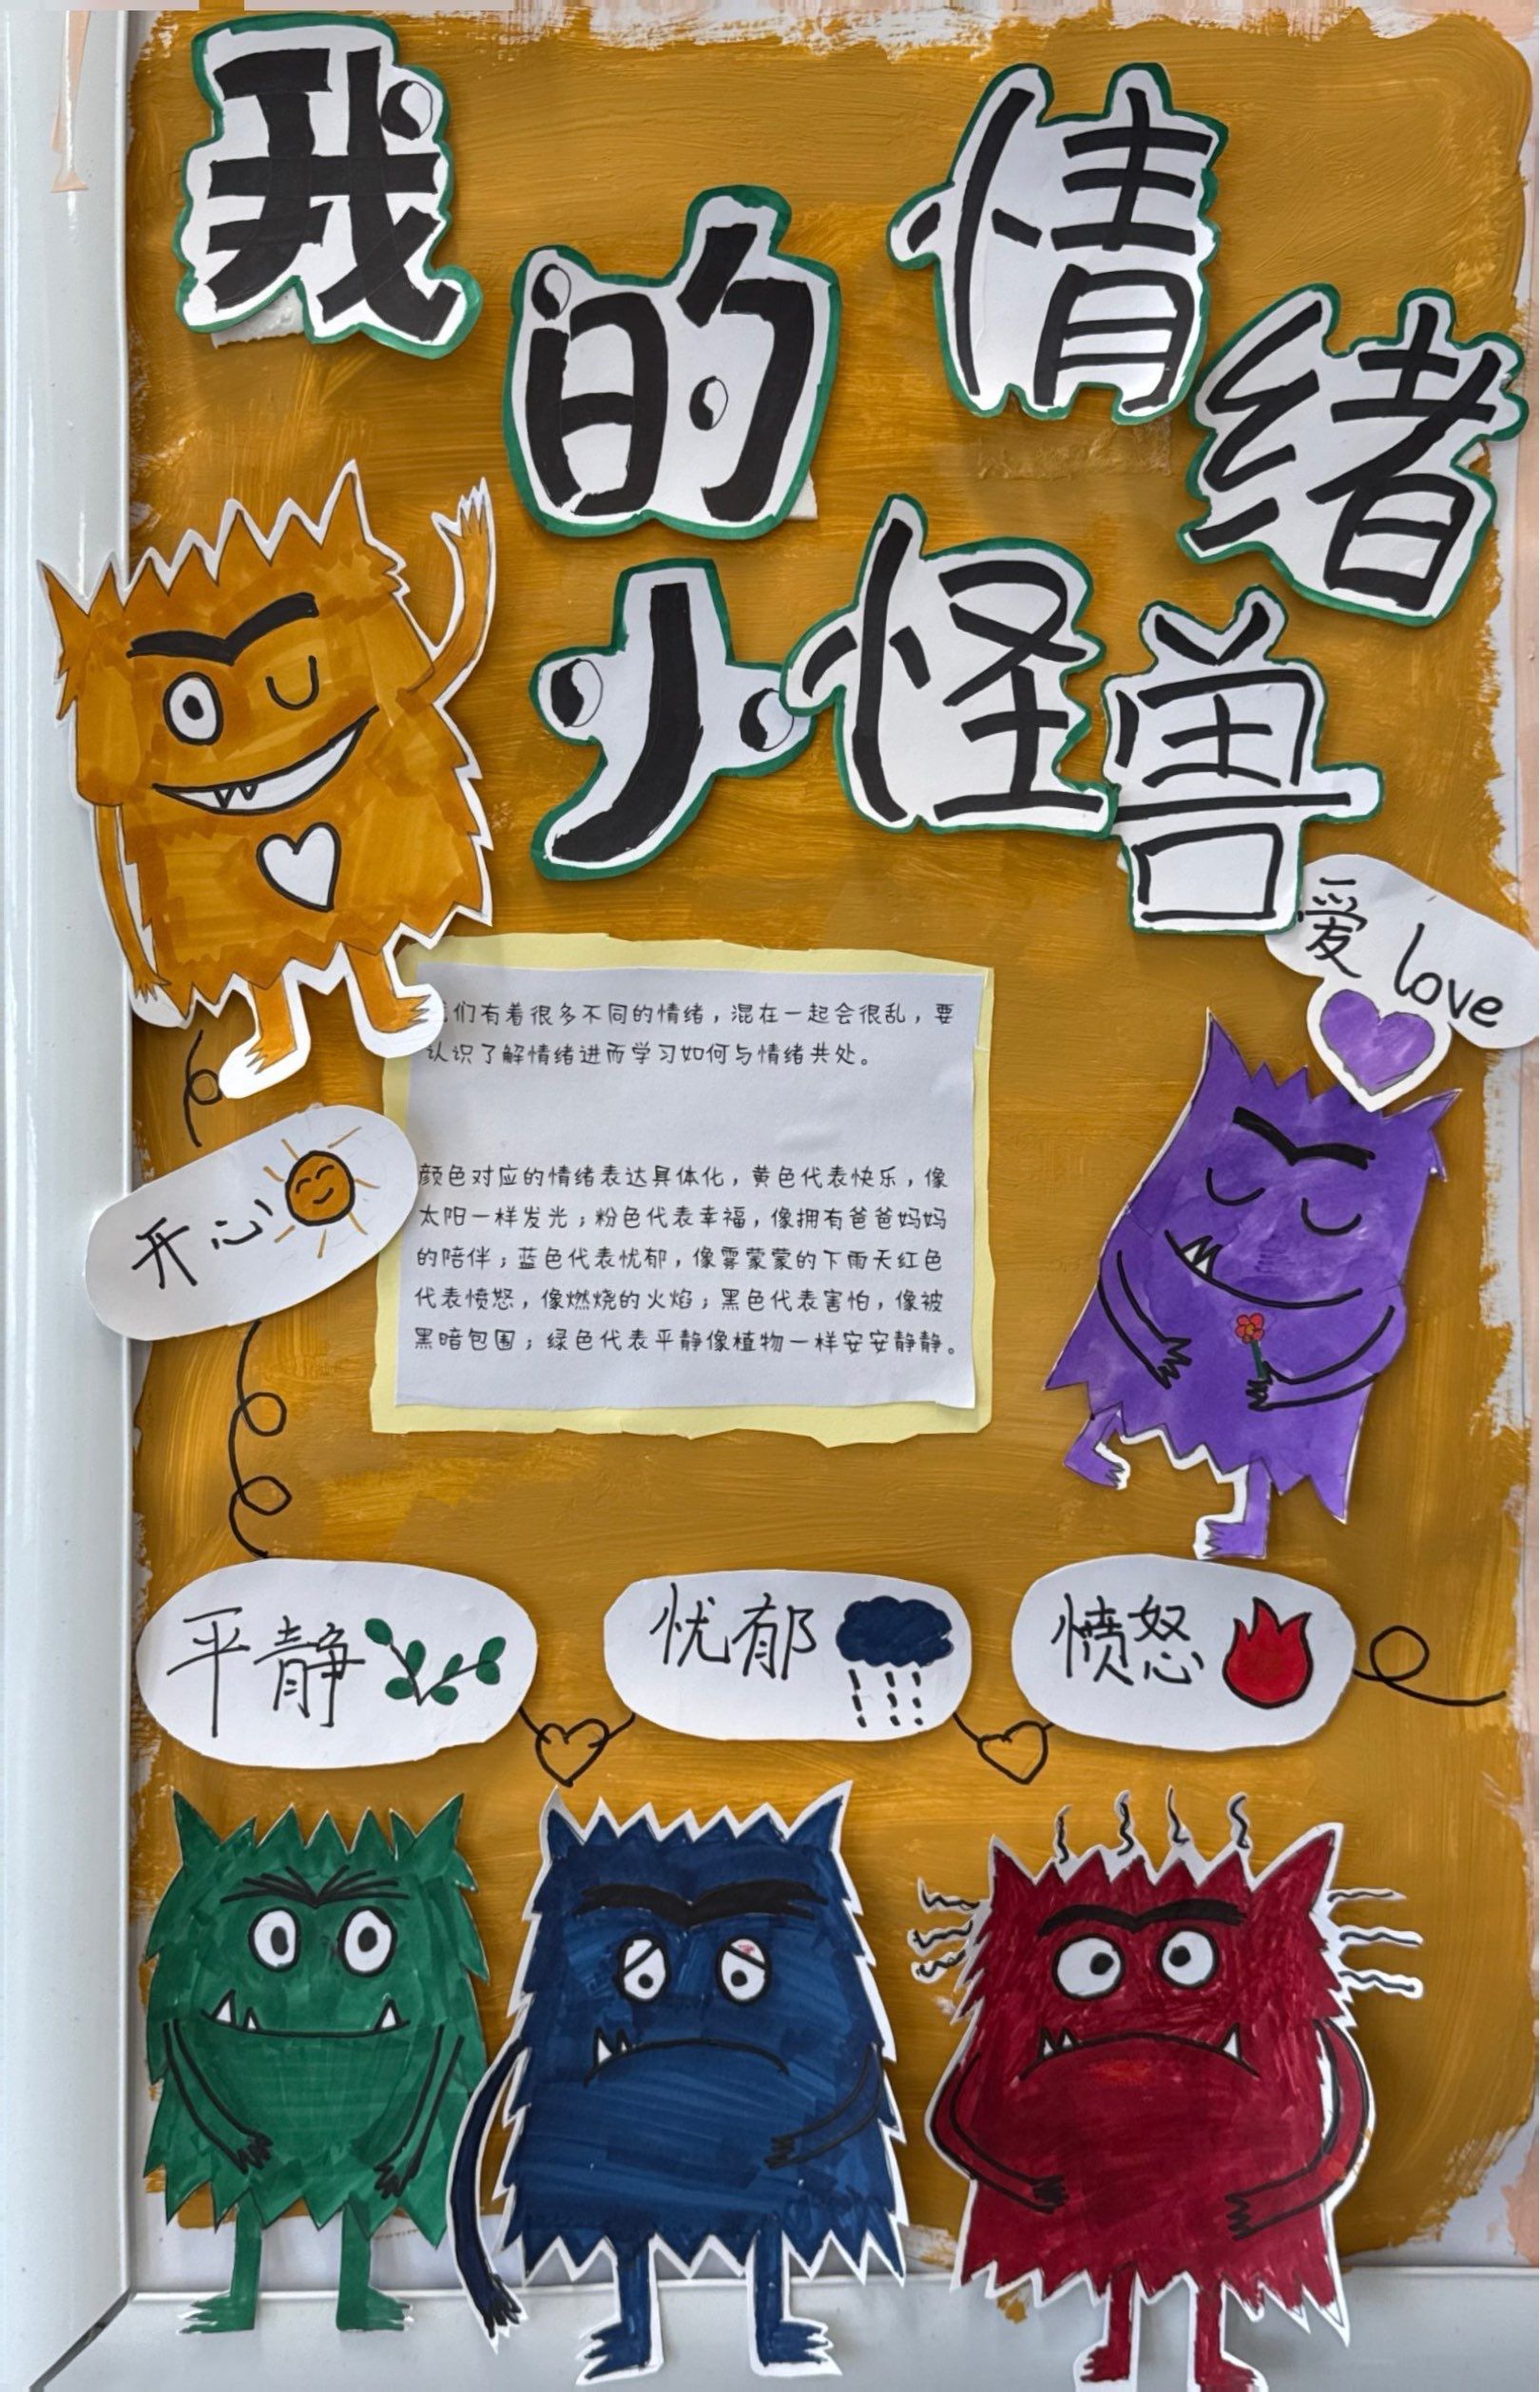 我的情绪
小怪兽
爱 love
们有着很多不同的情绪，混在一起会很乱，要
认识了解情绪进而学习如何与情绪共处。
颜色对应的情绪表达具体化，黄色代表快乐，像
太阳一样发光；粉色代表幸福，像拥有爸爸妈妈
的陪伴；蓝色代表忧郁，像雾蒙蒙的下雨天红色
代表愤怒，像燃烧的火焰；黑色代表害怕，像被
黑暗包围；绿色代表平静像植物一样安安静静。
开心
平静
忧郁
愤怒